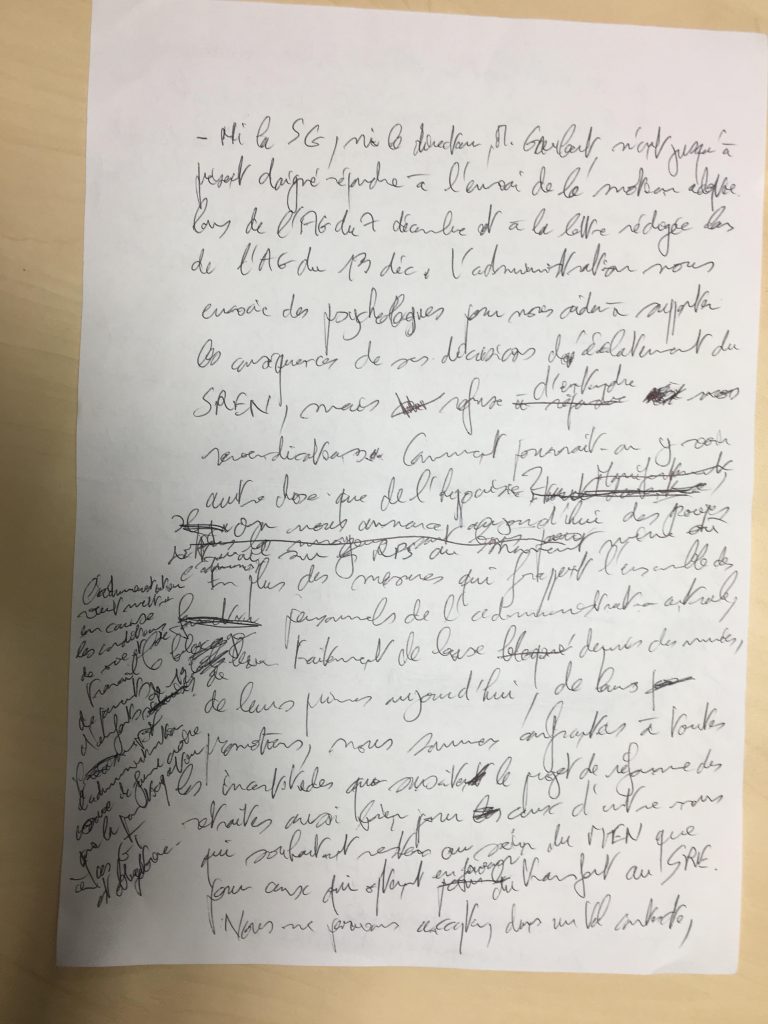 - Ni la SG, ni le directeur, M. n'ont jusqu'à
présent daigné répondre à l'envoi de la motion adoptée
lors de l'AG du 7 décembre et à la lettre rédigée lors
de l'AG du 13 déc. L'administration nous
envoie des psychologues pour nous aider à supporter
les conséquences de ses décisions d'éclatement du
SREN, mais refuse d'entendre nos
revendications. Comment pourrait-on y voir
autre chose que de l'hypocrisie ?
On nous annonce aujourd'hui des
sur les RPS au moment même où
l'administration
veut mettre
en cause
les conditions
de vie et de
travail
de parents
d'enfants
l'administration
que la participation
à ces
est obligatoire.
En plus des mesures qui frappent l'ensemble des
personnels de l'administration centrale,
blocage de leur traitement de base depuis des années,
de leurs primes aujourd'hui, de leurs
promotions, nous sommes confrontés à toutes
les incertitudes que suscite le projet de réforme des
retraites aussi bien pour ceux d'entre nous
qui souhaitent rester au sein du MEN que
pour ceux qui optent en faveur du transfert au SRE.
Nous ne pouvons accepter, dans un tel contexte,